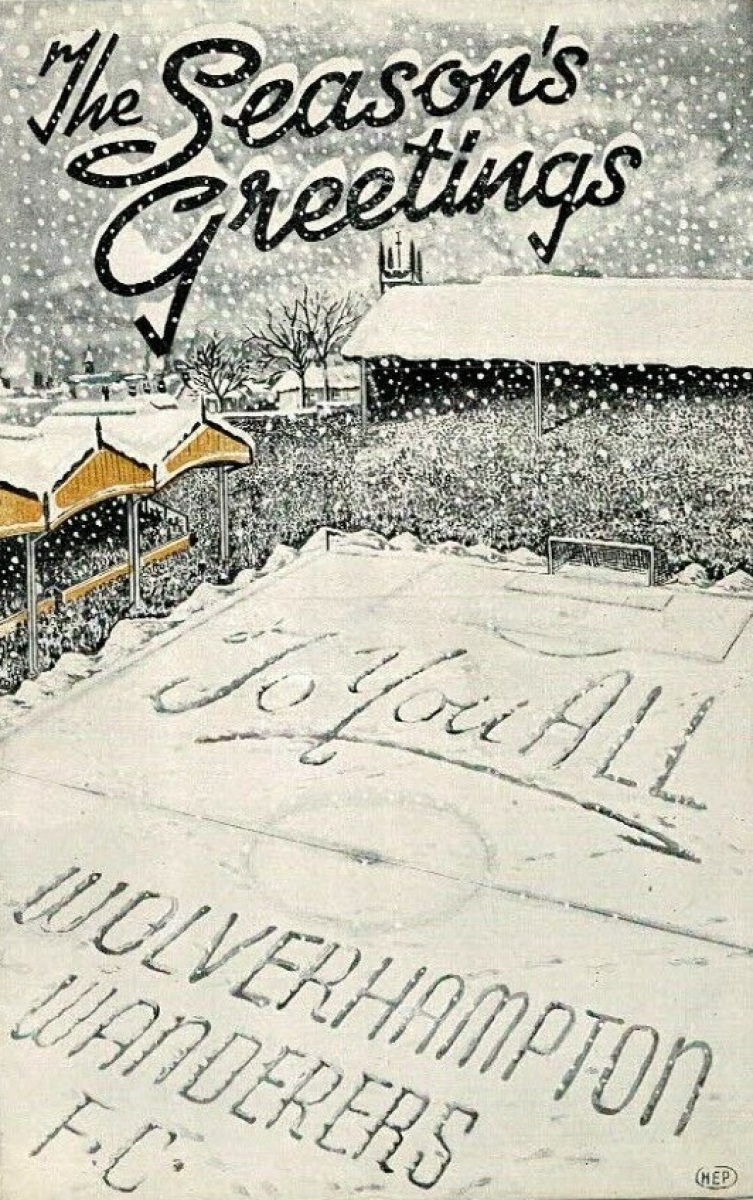 The Season's
Greetings
To You ALL
WOLVERHAMPTON
WANDERERS
F.C.
HEP